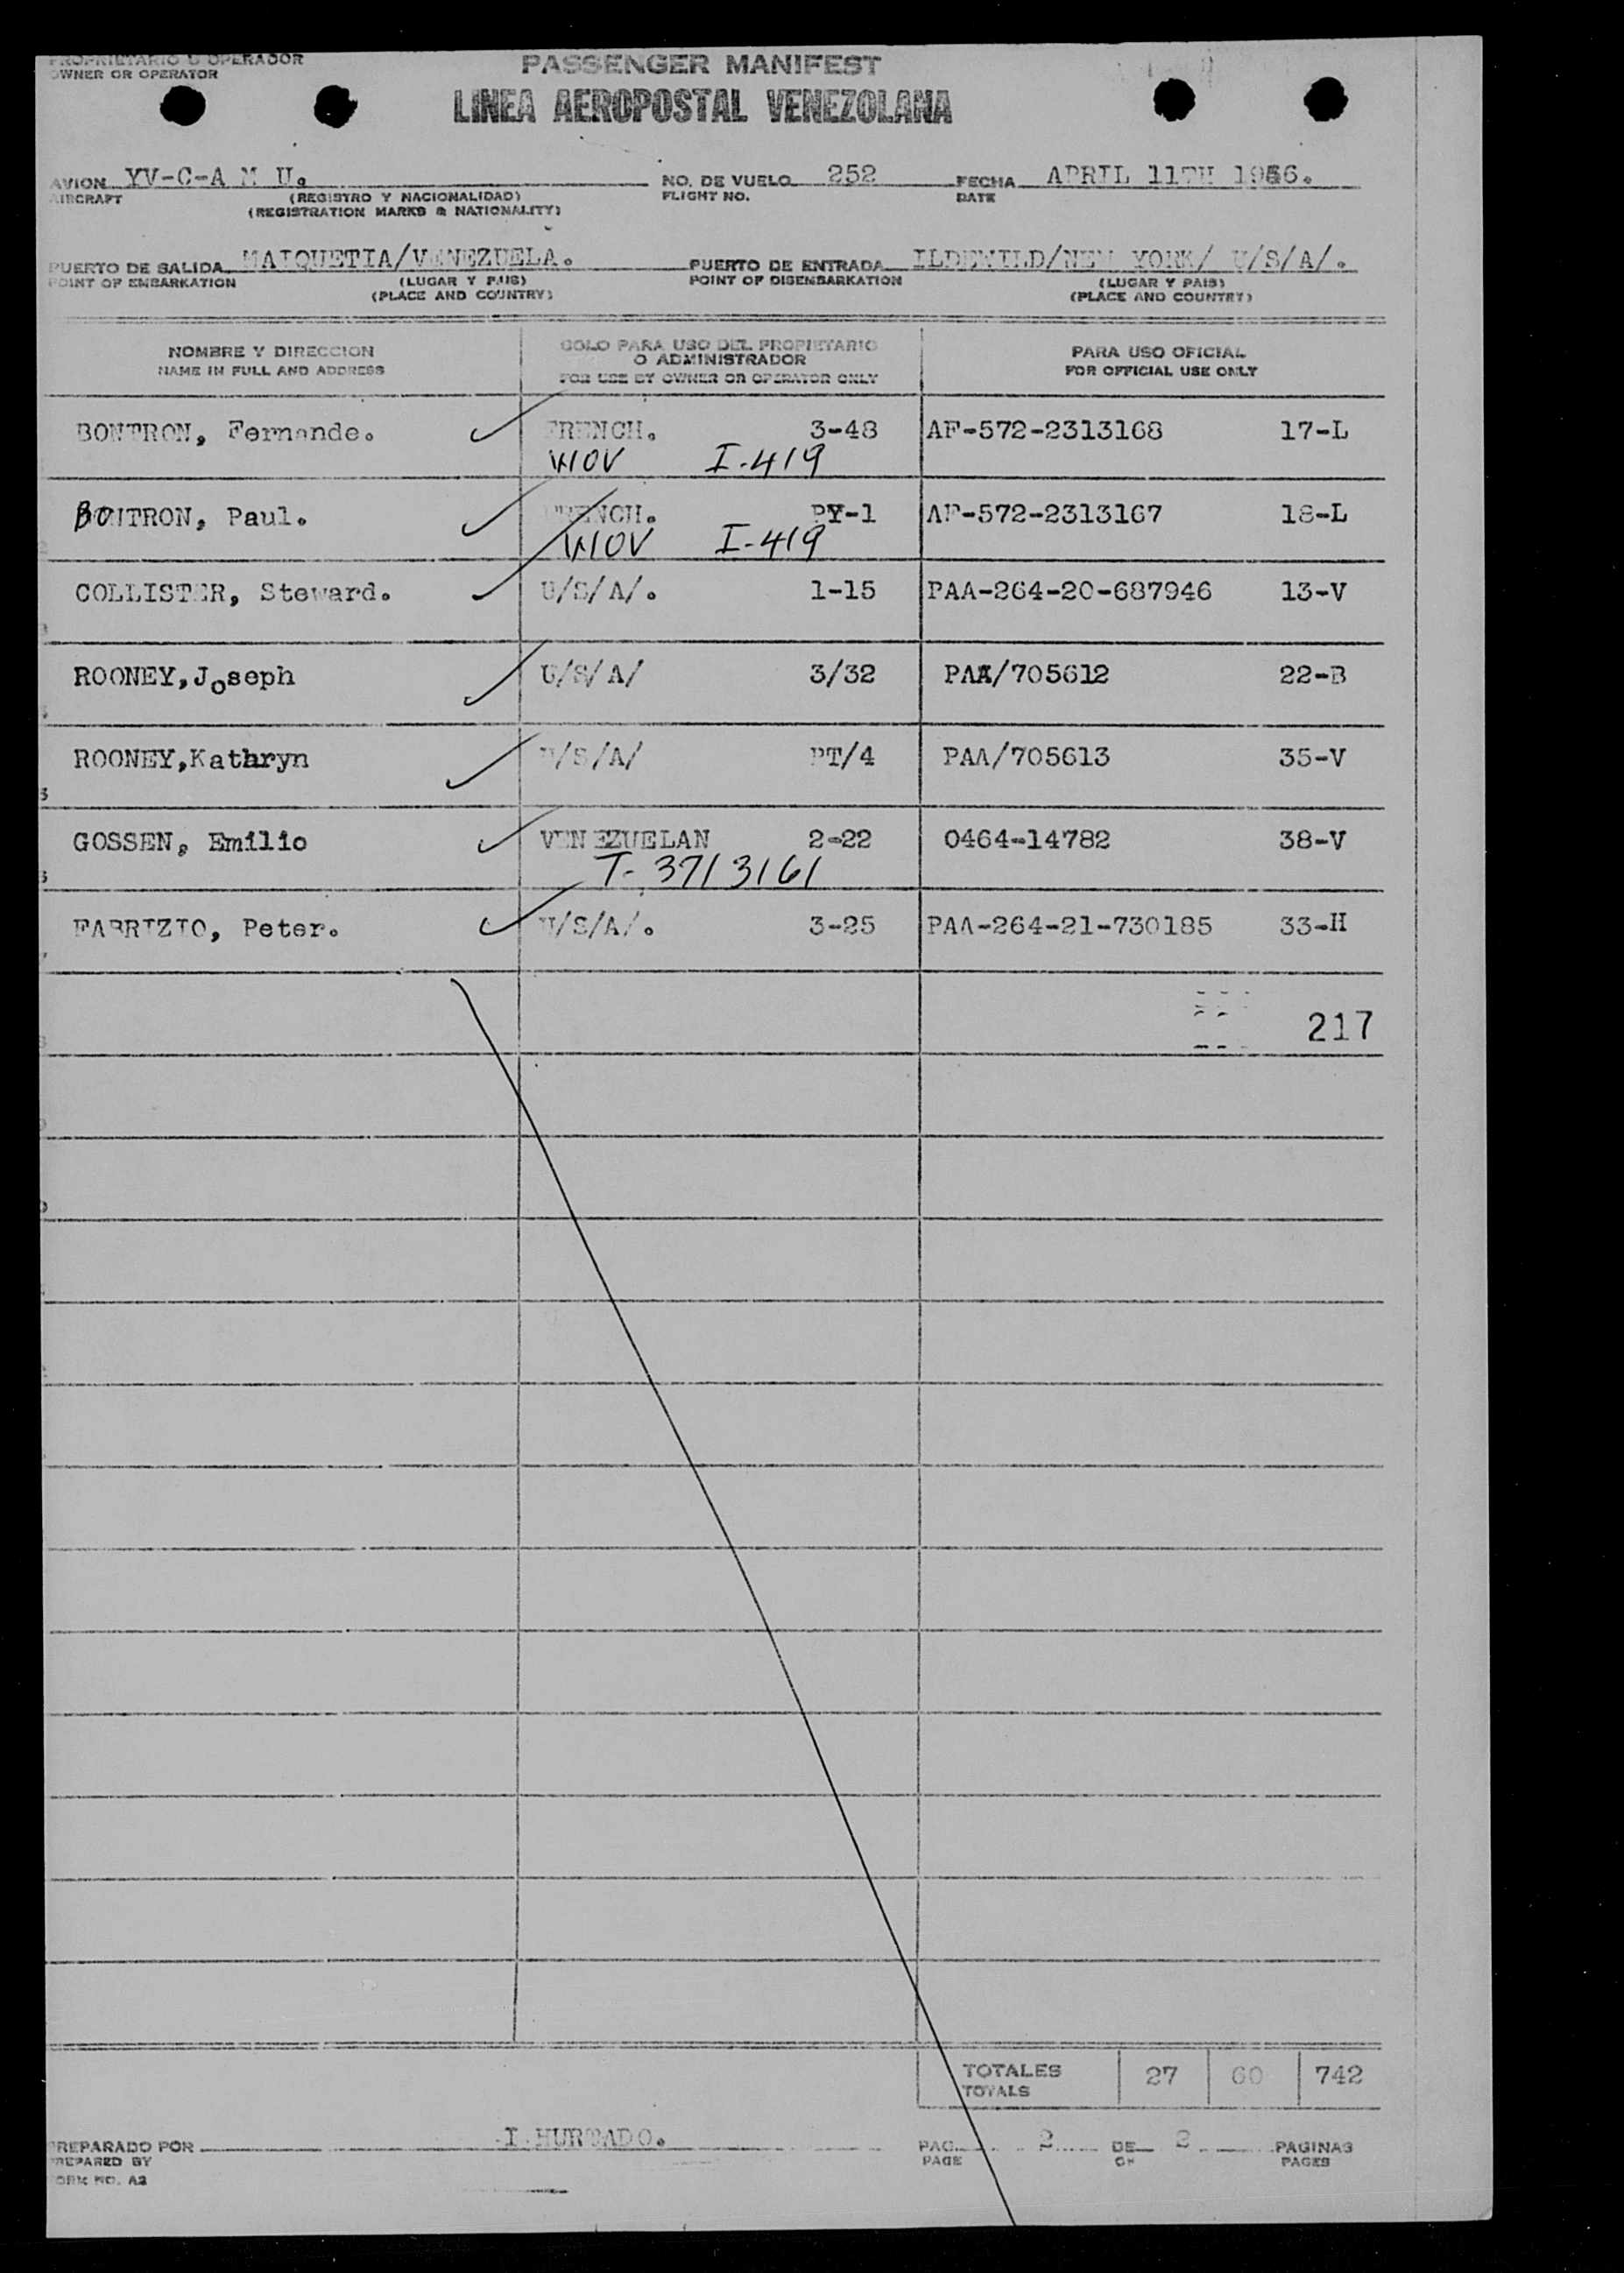 PROPRIETARIO O OPERADOR
OWNER OR OPERATOR
PASSENGER MANIFEST
LINEA AEROPOSTAL VENEZOLANA
AVION YV-C-A M U. NO. DE VUELO 252 FECHA APRIL 11TH 1956.
AIRCRAFT (REGISTRO Y NACIONALIDAD) FLIGHT NO. DATE
(REGISTRATION MARKS & NATIONALITY)
PUERTO DE SALIDA MAIQUETIA/VENEZUELA. PUERTO DE ENTRADA ILDEWILD/NEW YORK/ U/S/A/.
POINT OF EMBARKATION (LUGAR Y PAIS) POINT OF DISEMBARKATION (LUGAR Y PAIS)
(PLACE AND COUNTRY) (PLACE AND COUNTRY)
NOMBRE Y DIRECCION SOLO PARA USO DEL PROPIETARIO PARA USO OFICIAL
O ADMINISTRADOR
NAME IN FULL AND ADDRESS FOR USE BY OWNER OR OPERATOR ONLY FOR OFFICIAL USE ONLY
BONTRON, Fernande. FRENCH. 3-48 AF-572-2313168 17-L
WOV I-419
BONTRON, Paul. FRENCH. PY-1 AF-572-2313167 18-L
WOV I-419
COLLISTER, Steward. U/S/A/. 1-15 PAA-264-20-687946 13-V
ROONEY,Joseph U/S/A/ 3/32 PAA/705612 22-B
ROONEY,Kathryn U/S/A/ PT/4 PAA/705613 35-V
GOSSEN, Emilio VENEZUELAN 2-22 0464-14782 38-V
T-3713161
FABRIZIO, Peter. U/S/A/. 3-25 PAA-264-21-730185 33-H
217
TOTALES 27 60 742
TOTALS
PREPARADO POR I HURTADO. PAG. 2 DE 2 PAGINAS
PREPARED BY PAGE OF PAGES
FORM NO. A2